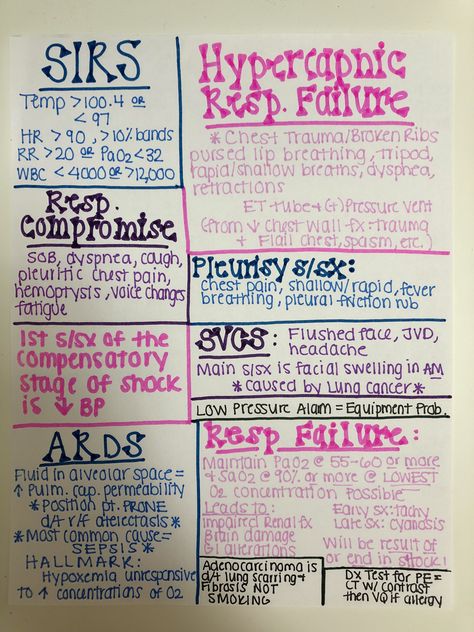 SIRS
Temp >100.4 OR
<97
HR >90, >10% bands
RR >20 OR PaO2 <32
WBC <4000 OR >12,000
Hypercapnic
Resp. Failure
* Chest Trauma/Broken Ribs
pursed lip breathing, tripod,
rapid/shallow breaths, dyspnea,
retractions
ET tube + (+) Pressure vent
(from ↓ chest wall fx: trauma
+ Flail chest, spasm, etc.)
Resp.
Compromise
SOB, dyspnea, cough,
pleuritic chest pain,
hemoptysis, voice changes
fatigue
Pleurisy s/sx:
chest pain, shallow/rapid, fever
breathing, pleural friction rub
1st s/sx of the
compensatory
stage of shock
is ↓ BP
SVCS: Flushed face, JVD,
headache
Main s/sx is facial swelling in AM
*caused by Lung cancer*
LOW Pressure Alarm = Equipment Prob.
ARDS
Fluid in alveolar space =
↑ Pulm. cap. permeability
*Position pt. PRONE
d/t r/f atelectasis*
*Most common cause =
SEPSIS*
HALLMARK:
Hypoxemia unresponsive
to ↑ concentrations of O2
Resp Failure:
Maintain PaO2 @ 55-60 or more
+ SaO2 @ 90% or more @ LOWEST
O2 concentration possible
Leads to:
impaired Renal fx
Brain damage
GI alterations
Early sx: tachy
Late sx: cyanosis
Will be result of
or end in shock!
Adenocarcinoma is
d/t lung scarring +
Fibrosis NOT
SMOKING
Dx Test for PE =
CT w/ contrast
then VQ if allergy